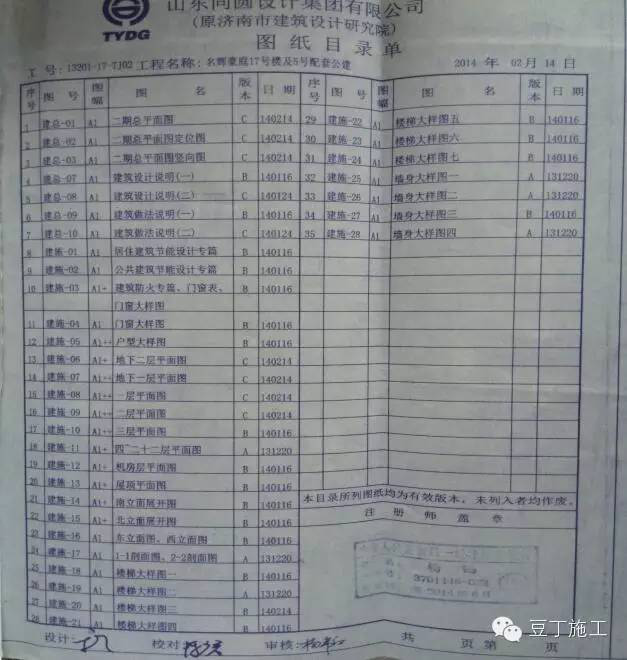 山东同圆设计集团有限公司
(原济南市建筑设计研究院)
TYDG
图纸目录单
工 号: 13201-17-7J02 工程名称: 名辉豪庭17号楼及5号配套公建 2014 年 02月 14 日
序号 图 号 图幅 图 名 版本 日 期 序号 图 号 图幅 图 名 版本 日 期
1 建总-01 A1 二期总平面图 C 140214 29 建施-22 A1 楼梯大样图五 B 140116
2 建总-02 A1 二期总平面图定位图 C 140214 30 建施-23 A1 楼梯大样图六 B 140116
3 建总-03 A1 二期总平面图竖向图 C 140214 31 建施-24 A1 楼梯大样图七 B 140116
4 建总-07 A1 建筑设计说明(一) B 140116 32 建施-25 A1 墙身大样图一 A 131220
5 建总-08 A1 建筑设计说明(二) C 140124 33 建施-26 A1 墙身大样图二 A 131220
6 建总-09 A1 建筑做法说明(一) B 140116 34 建施-27 A1 墙身大样图三 B 140116
7 建总-10 A1 建筑做法说明(二) C 140124 35 建施-28 A1 墙身大样图四 A 131220
8 建施-01 A1 居住建筑节能设计专篇 B 140116
9 建施-02 A1 公共建筑节能设计专篇 B 140116
10 建施-03 A1+ 建筑防火专篇、门窗表、 B 140116
门窗大样图
11 建施-04 A1 门窗大样图 B 140116
12 建施-05 A1++ 户型大样图 B 140116
13 建施-06 A1+ 地下二层平面图 C 140214
14 建施-07 A1++ 地下一层平面图 C 140214
15 建施-08 A1++ 一层平面图 C 140214
16 建施-09 A1++ 二层平面图 C 140214
17 建施-10 A1+ 三层平面图 B 140116
18 建施-11 A1+ 四~二十二层平面图 A 131220
19 建施-12 A1+ 机房层平面图 B 140116
20 建施-13 A1+ 屋顶平面图 B 140116
21 建施-14 A1+ 南立面展开图 B 140116
22 建施-15 A1+ 北立面展开图 B 140116
23 建施-16 A1 东立面图、西立面图 B 140116
24 建施-17 A1 1-1剖面图、2-2剖面图 A 131220
25 建施-18 A1 楼梯大样图一 B 140116
26 建施-19 A1 楼梯大样图二 A 131220
27 建施-20 A1 楼梯大样图三 B 140214
28 建施-21 A1 楼梯大样图四 B 140116
本目录所列图纸均为有效版本, 未列入者均作废。
注 册 师 盖 章
设计: 校对: 审核: 共 页 第 页
豆丁施工